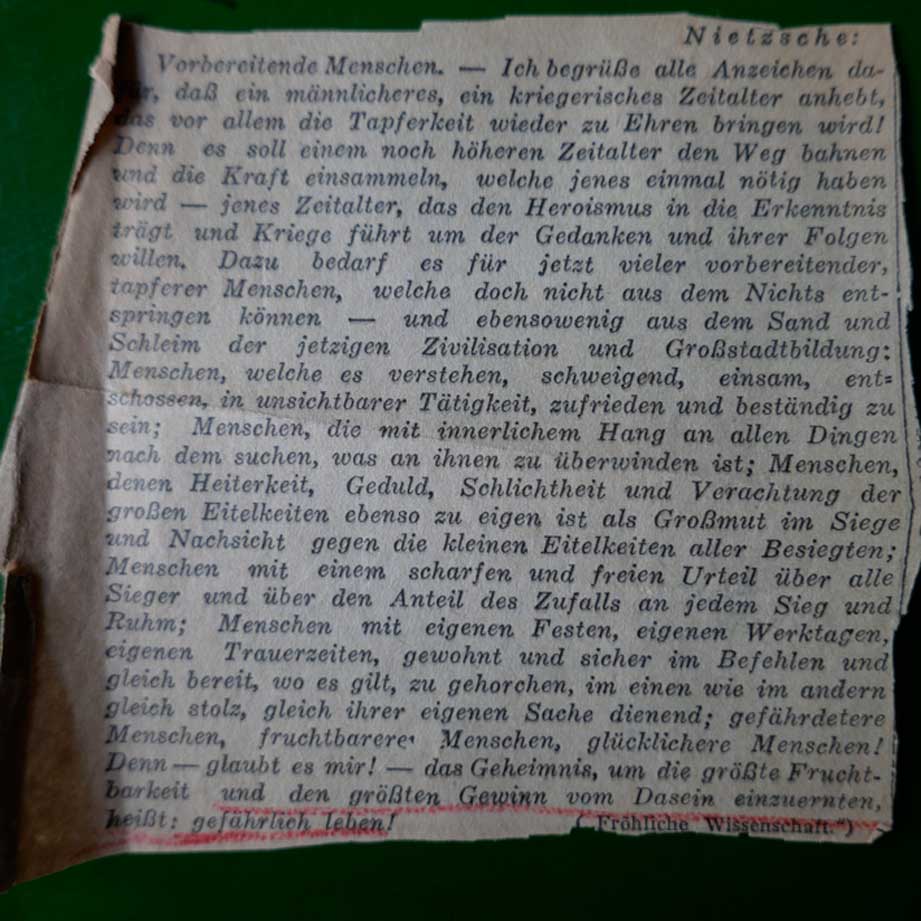 Nietzsche:
Vorbereitende Menschen. — Ich begrüße alle Anzeichen da-
für, daß ein männlicheres, ein kriegerisches Zeitalter anhebt,
das vor allem die Tapferkeit wieder zu Ehren bringen wird!
Denn es soll einem noch höheren Zeitalter den Weg bahnen
und die Kraft einsammeln, welche jenes einmal nötig haben
wird — jenes Zeitalter, das den Heroismus in die Erkenntnis
trägt und Kriege führt um der Gedanken und ihrer Folgen
willen. Dazu bedarf es für jetzt vieler vorbereitender,
tapferer Menschen, welche doch nicht aus dem Nichts ent-
springen können — und ebensowenig aus dem Sand und
Schleim der jetzigen Zivilisation und Großstadtbildung:
Menschen, welche es verstehen, schweigend, einsam, ent=
schossen, in unsichtbarer Tätigkeit, zufrieden und beständig zu
sein; Menschen, die mit innerlichem Hang an allen Dingen
nach dem suchen, was an ihnen zu überwinden ist; Menschen,
denen Heiterkeit, Geduld, Schlichtheit und Verachtung der
großen Eitelkeiten ebenso zu eigen ist als Großmut im Siege
und Nachsicht gegen die kleinen Eitelkeiten aller Besiegten;
Menschen mit einem scharfen und freien Urteil über alle
Sieger und über den Anteil des Zufalls an jedem Sieg und
Ruhm; Menschen mit eigenen Festen, eigenen Werktagen,
eigenen Trauerzeiten, gewohnt und sicher im Befehlen und
gleich bereit, wo es gilt, zu gehorchen, im einen wie im andern
gleich stolz, gleich ihrer eigenen Sache dienend; gefährdetere
Menschen, fruchtbarere Menschen, glücklichere Menschen!
Denn — glaubt es mir! — das Geheimnis, um die größte Frucht-
barkeit und den größten Gewinn vom Dasein einzuernten,
heißt: gefährlich leben! („Fröhliche Wissenschaft.")